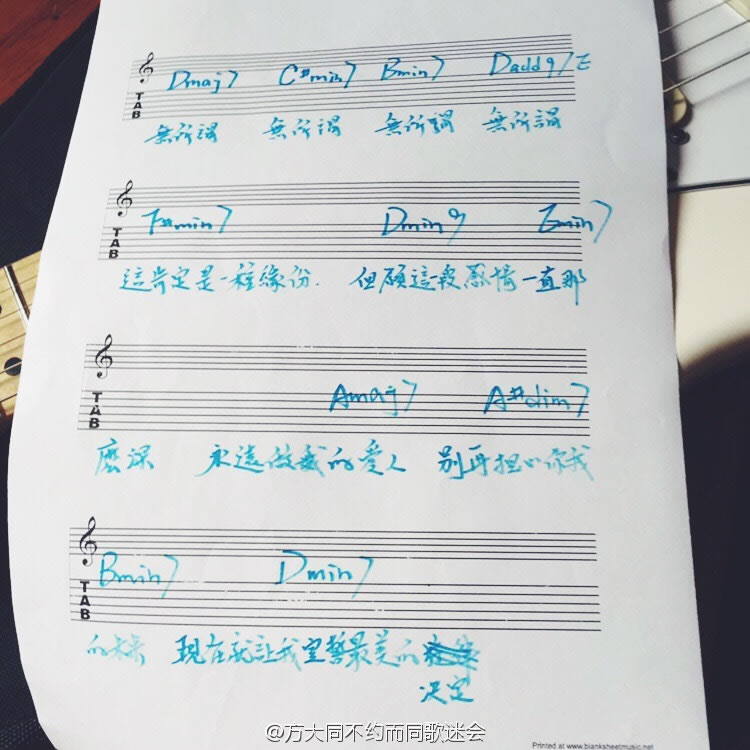 Dmaj7 C#min7 Bmin7 Dadd9/E
TAB
無所謂 無所謂 無所謂 無所謂
F#min7 Dmin9 Emin7
TAB
這肯定是一種緣份. 但願這段感情一直那
Amaj7 A#dim7
TAB
麼深 永遠做我的愛人 別再担心你我
Bmin7 Dmin7
TAB
的未來 現在就讓我宣誓最美的
决定
@方大同不约而同歌迷会
Printed at www.blanksheetmusic.net